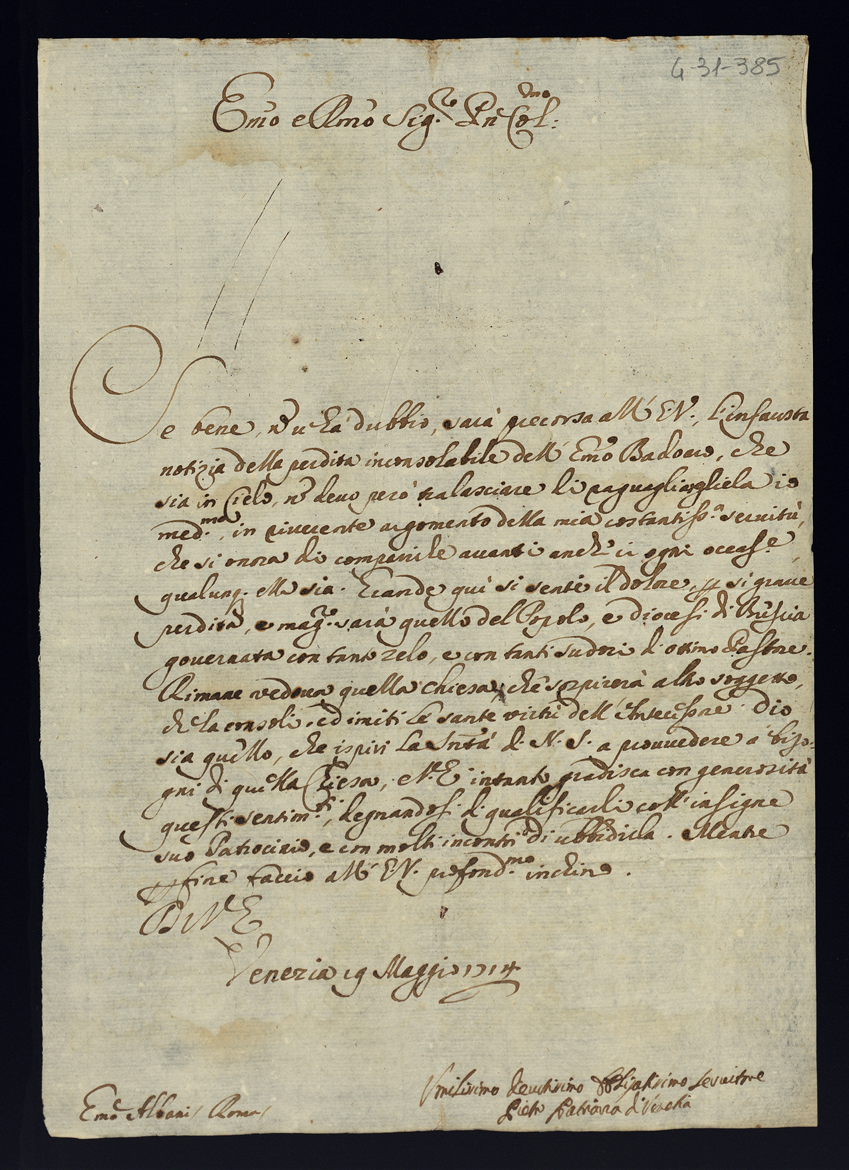 4-31-385
Emo e Rmo Sig.re Pn Colmo:
Se bene, nō v'ha dubbio, sarà precorsa all' E.V., l'infausta
notizia della perdita inconsolabile dell' Emo Badoaro, che
sia in Cielo, nō devo però tralasciare di raguagliargliela io
med.mo, in riverente argomento della mia costantiss.a servitù,
che si onora di comparirle avanti anch' in ogni occas.e
qualunq. ella sia. Grande quì si sente il dolore p si grave
perdita, e mag.r sarà quello del Popolo, e Diocesi di Brescia
governata con tanto zelo, e con tanti sudori di ottimo Pastore.
Rimane vedova quella Chiesa, che sospirerà altro soggetto,
che la consoli, ed imiti le sante virtù dell' Antecessore. Dio
sia quello, che ispiri la Sntà di N. S. a provvedere a' biso-
gni di quella Chiesa, e V.E. intanto gradisca con generosità
questi sentim.ti, degnandosi di qualificarli coll' insigne
suo Patrocinio, e con molti incontri di ubbidirla. Mentre
p fine faccio all' E.V. profond.mo inchino.
Di V.E.
Venezia 19 Maggio 1714
Umilissimo Devotissimo Obligatissimo Servitore
Pietro Patriarca di Venetia
Emo Albani Roma